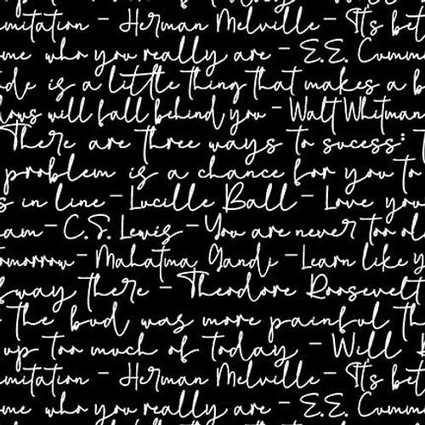 imitation - Herman Melville - It's bet
me who you really are - E.E. Cummi
is a little thing that makes a b
will fall behind you - Walt Whitman
There are three ways to sucess: T
problem is a chance for you to
s in line - Lucille Ball - Love you
am - C.S. Lewis - You are never too ol
omorrow - Mahatma Gandi - Learn like y
fway there - Theodore Roosevelt
the bud was more painful th
up too much of today - Will
mitation - Herman Melville - It's bet
me who you really are - E.E. Cummi